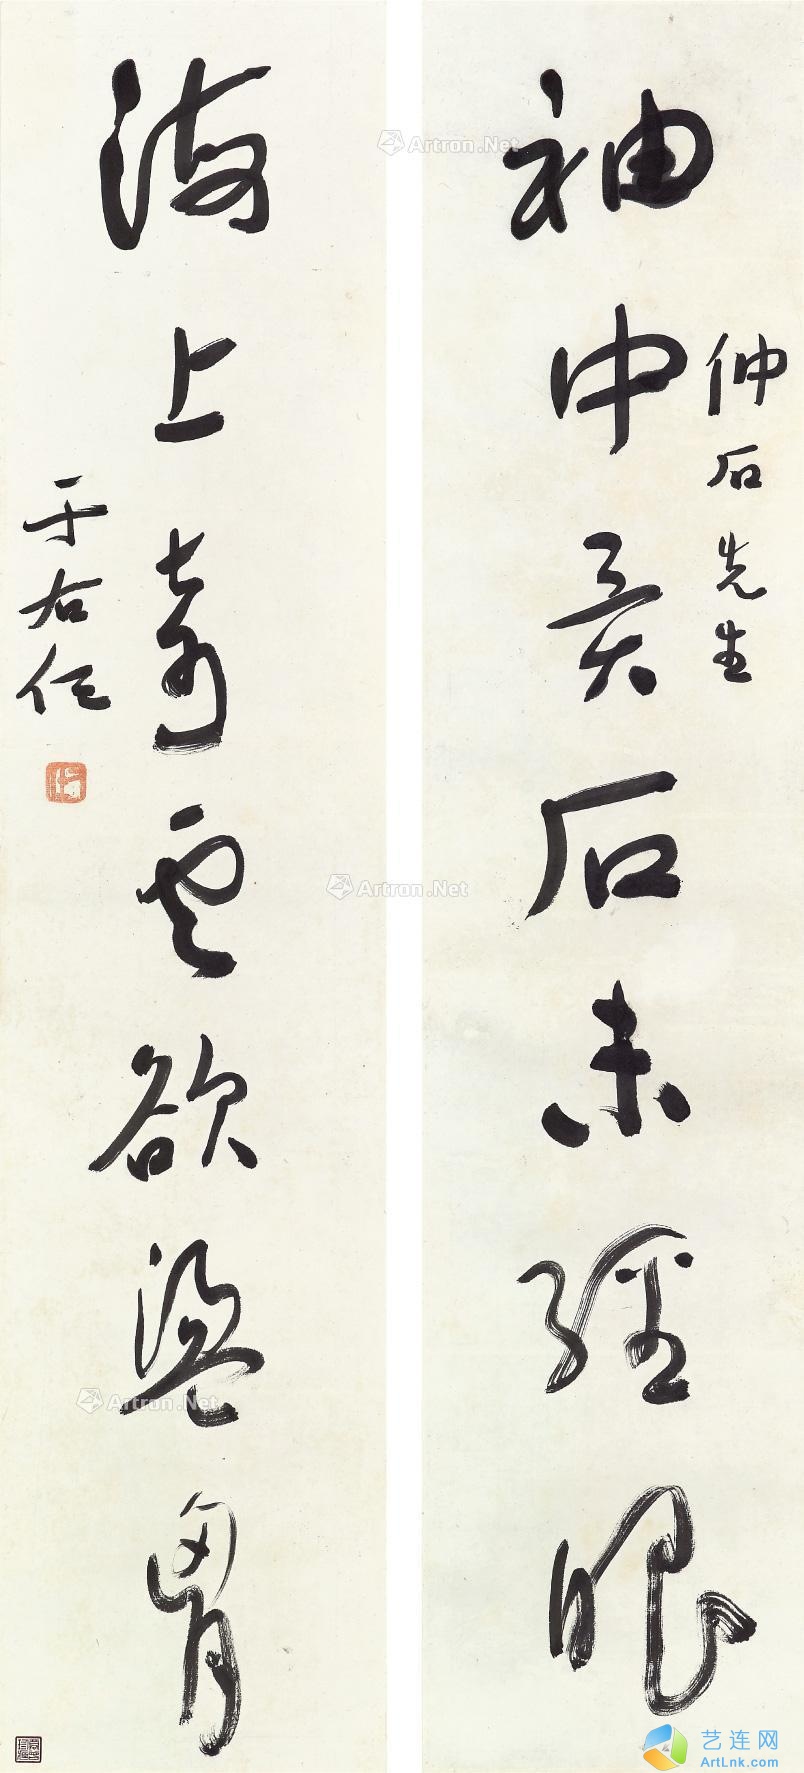 袖中異石未經眼
仲石先生
海上奇雲欲盪胷
于右任
Artron.Net
Artron.Net
Artron.Net
艺连网
ArtLnk.com